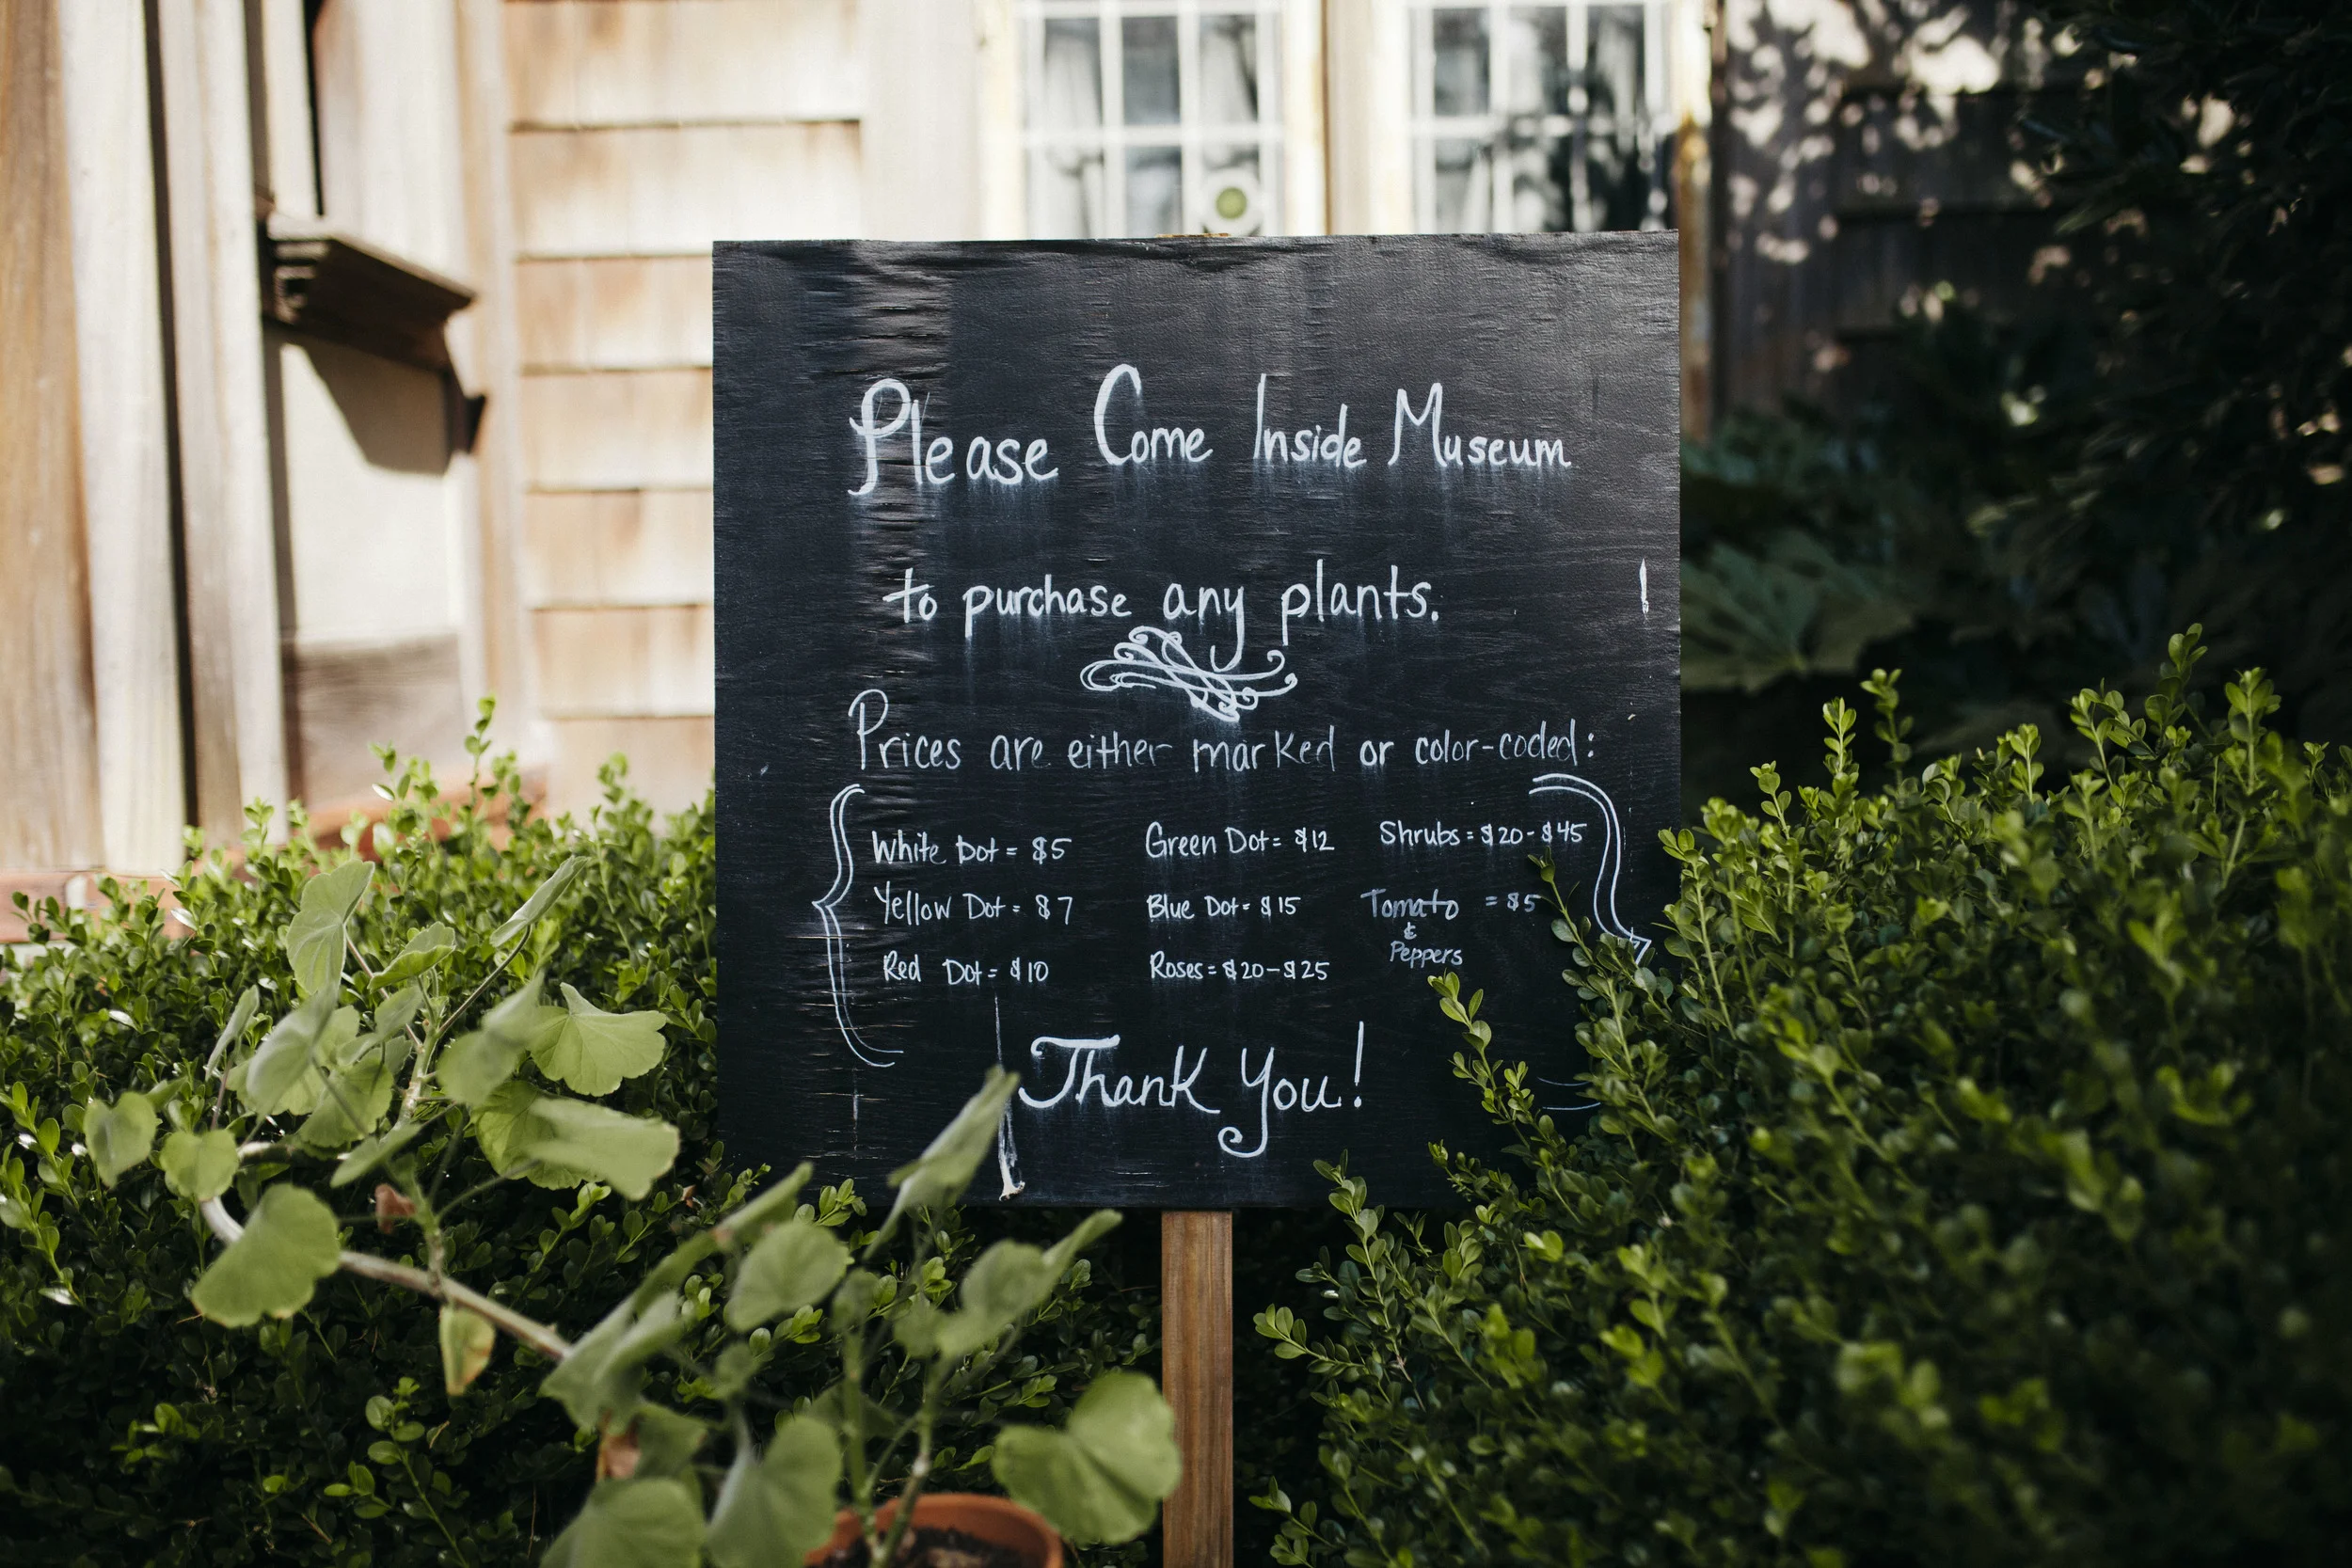 Please Come Inside Museum
to purchase any plants.
Prices are either marked or color-coded:
White Dot = $5
Yellow Dot = $7
Red Dot = $10
Green Dot = $12
Blue Dot = $15
Roses = $20-$25
Shrubs = $20-$45
Tomato = $5
&
Peppers
Thank You!